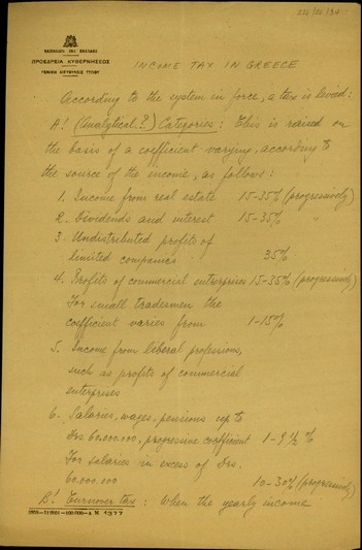 ΒΑΣΙΛΕΙΟΝ ΤΗΣ ΕΛΛΑΔΟΣ
ΠΡΟΕΔΡΕΙΑ ΚΥΒΕΡΝΗΣΕΩΣ
ΓΕΝΙΚΗ ΔΙΕΥΘΥΝΣΙΣ ΤΥΠΟΥ
INCOME TAX IN GREECE
According to the system in force, a tax is levied:
A! (Analytical?) Categories: This is raised on
the basis of a coefficient varying, according to
the source of the income, as follows:
1. Income from real estate 15-35% (progressively)
2. Dividends and interest 15-35% "
3. Undistributed profits of
limited companies 35%
4. Profits of commercial enterprises 15-35% (progressively)
For small tradesmen the
coefficient varies from 1-15%
5. Income from liberal professions,
such as profits of commercial
enterprises
6. Salaries, wages, pensions up to
Drs 60.000.000, progressive coefficient 1-9½%
For salaries in excess of Drs.
60.000.000 10-30% (progressively)
B! Turnover tax: When the yearly income